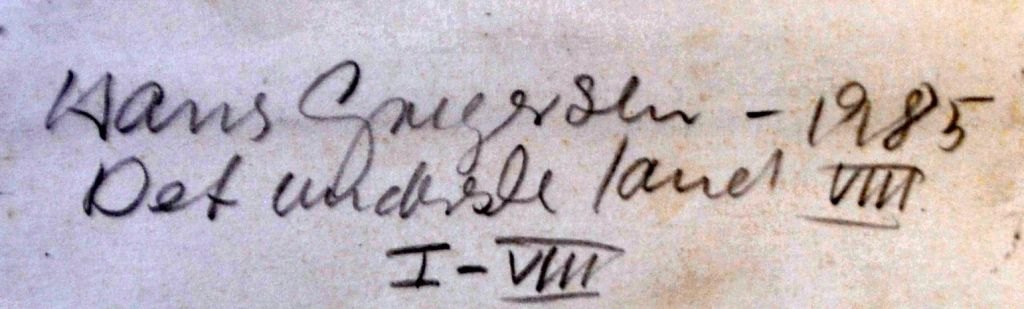 Hans Gregersen - 1985
Det underste land VIII
I - VIII